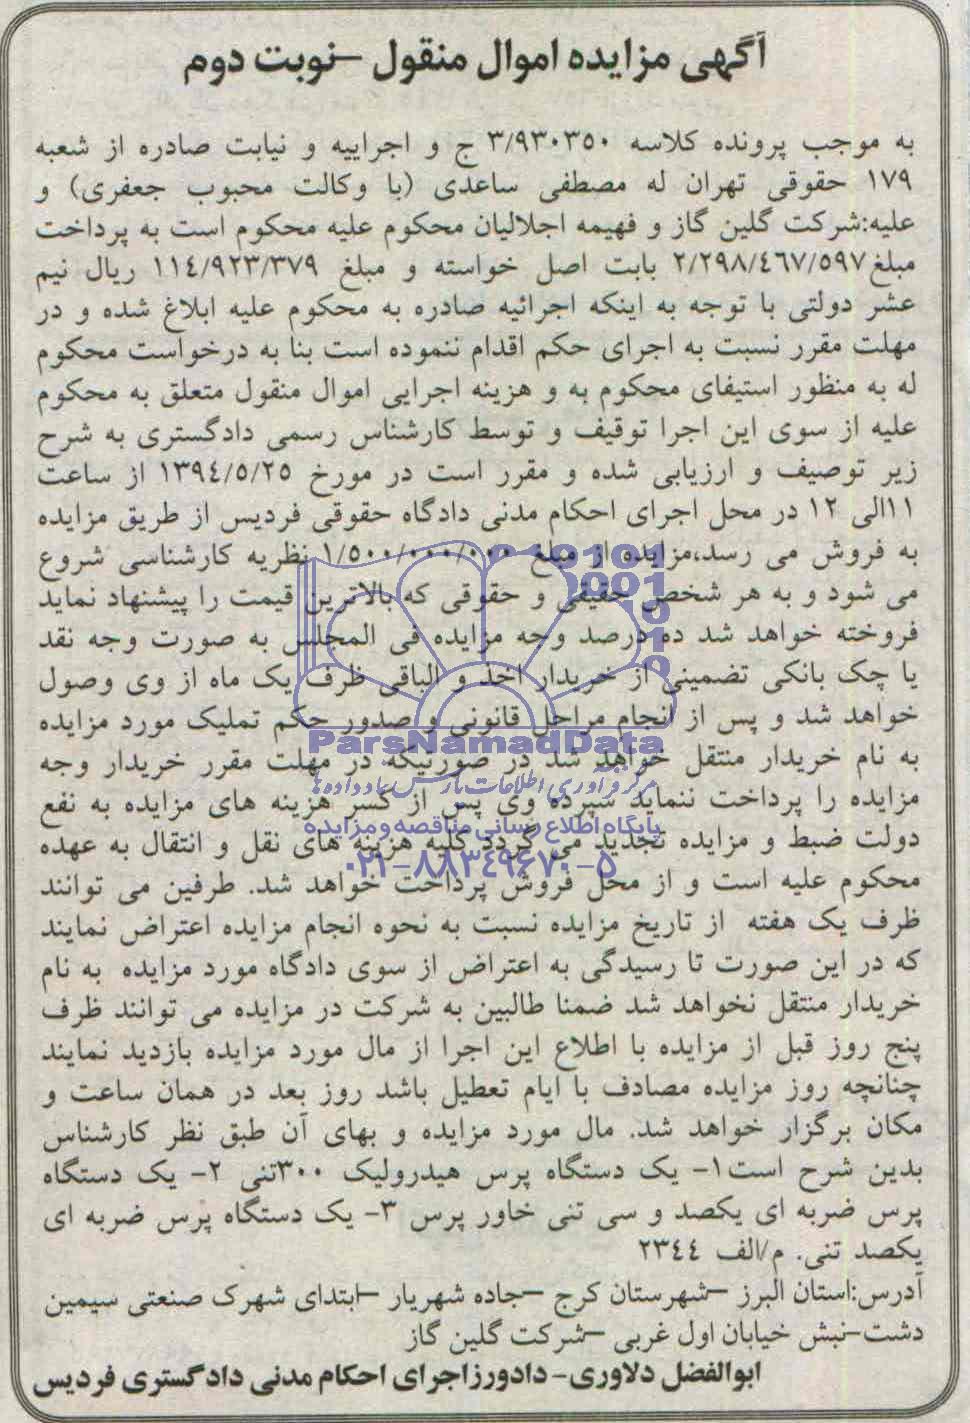 آگهی مزایده اموال منقول –نوبت دوم
به موجب پرونده کلاسه ۳/۹۳۰۳۵۰ ج و اجراییه و نیابت صادره از شعبه
۱۷۹ حقوقی تهران له مصطفی ساعدی (با وکالت محبوب جعفری) و
علیه:شرکت گلین گاز و فهیمه اجلالیان محکوم علیه محکوم است به پرداخت
مبلغ۲/۲۹۸/٤٦۷/۵۹۷ بابت اصل خواسته و مبلغ ۱۱٤/۹۲۳/۳۷۹ ریال نیم
عشر دولتی با توجه به اینکه اجرائیه صادره به محکوم علیه ابلاغ شده و در
مهلت مقرر نسبت به اجرای حکم اقدام ننموده است بنا به درخواست محکوم
له به منظور استیفای محکوم به و هزینه اجرایی اموال منقول متعلق به محکوم
علیه از سوی این اجرا توقیف و توسط کارشناس رسمی دادگستری به شرح
زیر توصیف و ارزیابی شده و مقرر است در مورخ ۱۳۹٤/۵/۲۵ از ساعت
۱۱الی ۱۲ در محل اجرای احکام مدنی دادگاه حقوقی فردیس از طریق مزایده
به فروش می رسد،مزایده از مبلغ ۱/۵۰۰/۰۰۰/۰۰۰ نظریه کارشناسی شروع
می شود و به هر شخص حقیقی و حقوقی که بالاترین قیمت را پیشنهاد نماید
فروخته خواهد شد ده درصد وجه مزایده فی المجلس به صورت وجه نقد
یا چک بانکی تضمینی از خریدار اخذ و الباقی ظرف یک ماه از وی وصول
خواهد شد و پس از انجام مراحل قانونی و صدور حکم تملیک مورد مزایده
به نام خریدار منتقل خواهد شد در صورتیکه در مهلت مقرر خریدار وجه
مزایده را پرداخت ننماید سپرده وی پس از کسر هزینه های مزایده به نفع
دولت ضبط و مزایده تجدید می گردد کلیه هزینه های نقل و انتقال به عهده
محکوم علیه است و از محل فروش پرداخت خواهد شد. طرفین می توانند
ظرف یک هفته از تاریخ مزایده نسبت به نحوه انجام مزایده اعتراض نمایند
که در این صورت تا رسیدگی به اعتراض از سوی دادگاه مورد مزایده به نام
خریدار منتقل نخواهد شد ضمنا طالبین به شرکت در مزایده می توانند ظرف
پنج روز قبل از مزایده با اطلاع این اجرا از مال مورد مزایده بازدید نمایند
چنانچه روز مزایده مصادف با ایام تعطیل باشد روز بعد در همان ساعت و
مکان برگزار خواهد شد. مال مورد مزایده و بهای آن طبق نظر کارشناس
بدین شرح است۱- یک دستگاه پرس هیدرولیک ۳۰۰تنی ۲- یک دستگاه
پرس ضربه ای یکصد و سی تنی خاور پرس ۳- یک دستگاه پرس ضربه ای
یکصد تنی. م/الف ۲۳٤٤
آدرس:استان البرز –شهرستان کرج –جاده شهریار –ابتدای شهرک صنعتی سیمین
دشت-نبش خیابان اول غربی –شرکت گلین گاز
ابوالفضل دلاوری- دادورزاجرای احکام مدنی دادگستری فردیس
ParsNamadData
مرکز فرآوری اطلاعات پارس نماد داده ها
پایگاه اطلاع رسانی مناقصه و مزایده
۰۲۱-۸۸۳۴۹۶۷۰-۵